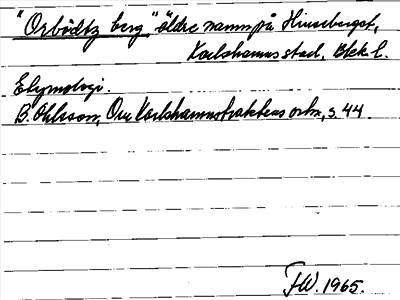 "Orbådtz berg," äldre namn på Hinseberget,
Karlshamns stad, Blek. l.
Etymologi.
B. Ohlsson, Om Karlshamnstraktens ortn., s. 44.
FW. 1965.